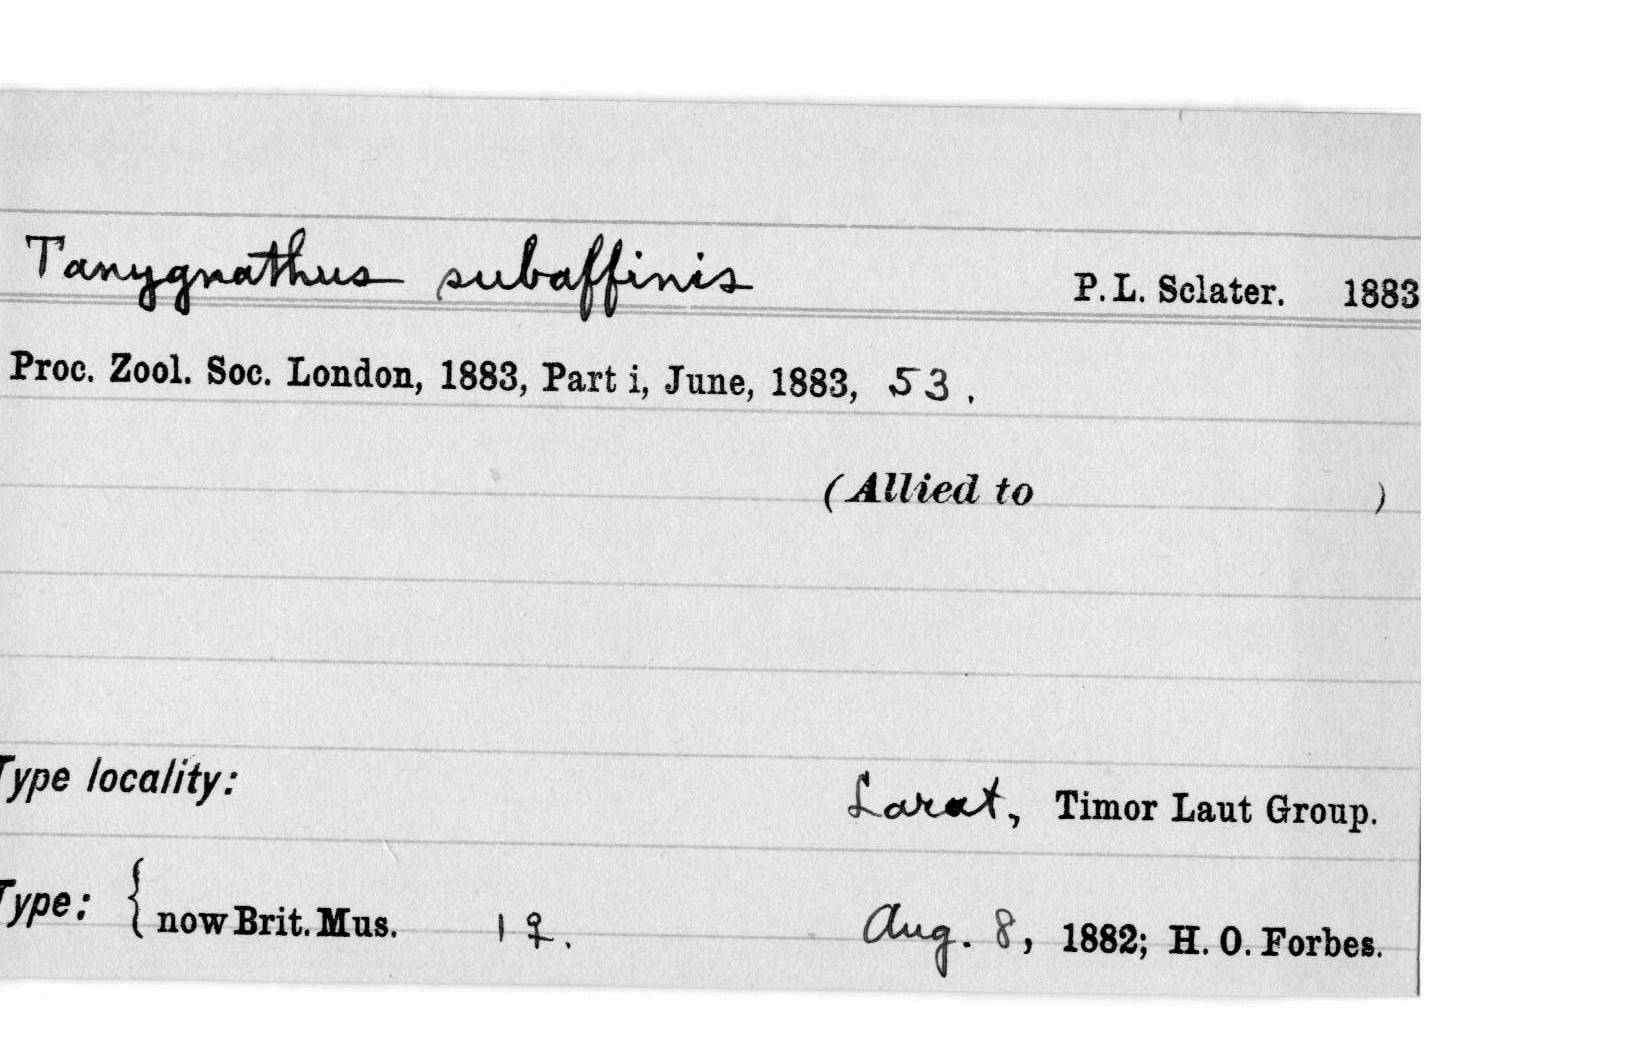 Tanygnathus subaffinis P. L. Sclater. 1883
Proc. Zool. Soc. London, 1883, Part i, June, 1883, 53.
(Allied to )
Type locality: Larat, Timor Laut Group.
Type: { now Brit. Mus. 1 ♀. Aug. 8, 1882; H. O. Forbes.